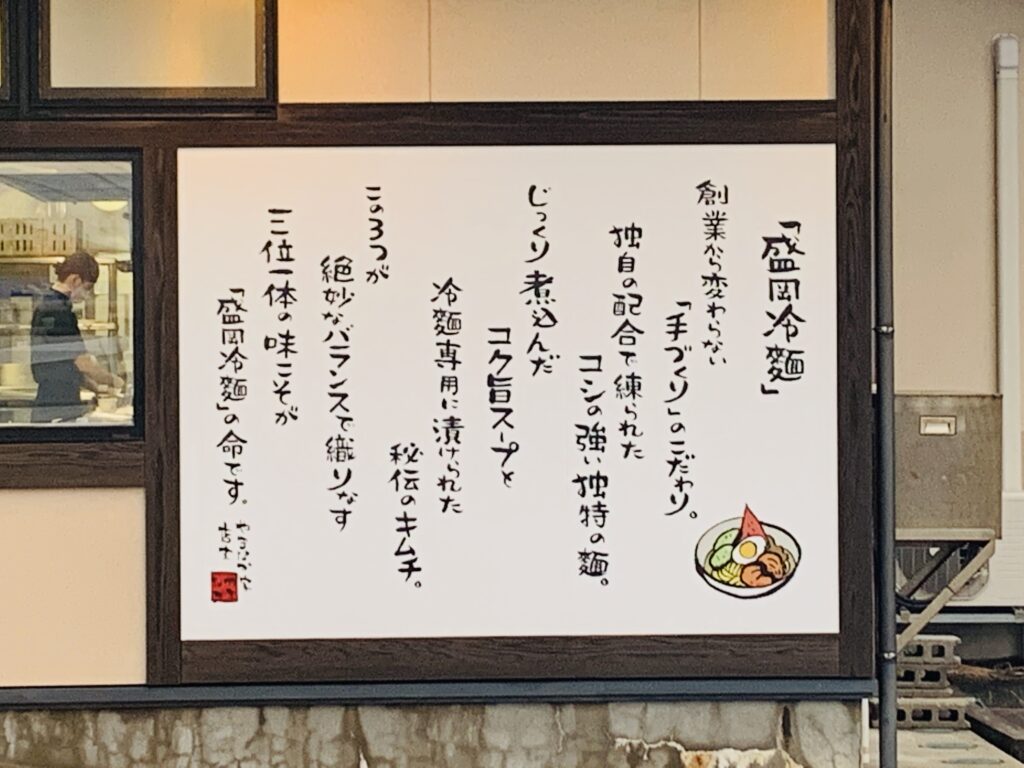 「盛岡冷麺」
創業から変わらない
「手づくり」のこだわり。
独自の配合で練られた
コシの強い独特の麺。
じっくり煮込んだ
コク旨スープと
冷麺専用に漬けられた
秘伝のキムチ。
この3つが
絶妙なバランスで織りなす
三位一体の味こそが
「盛岡冷麺」の命です。
店主